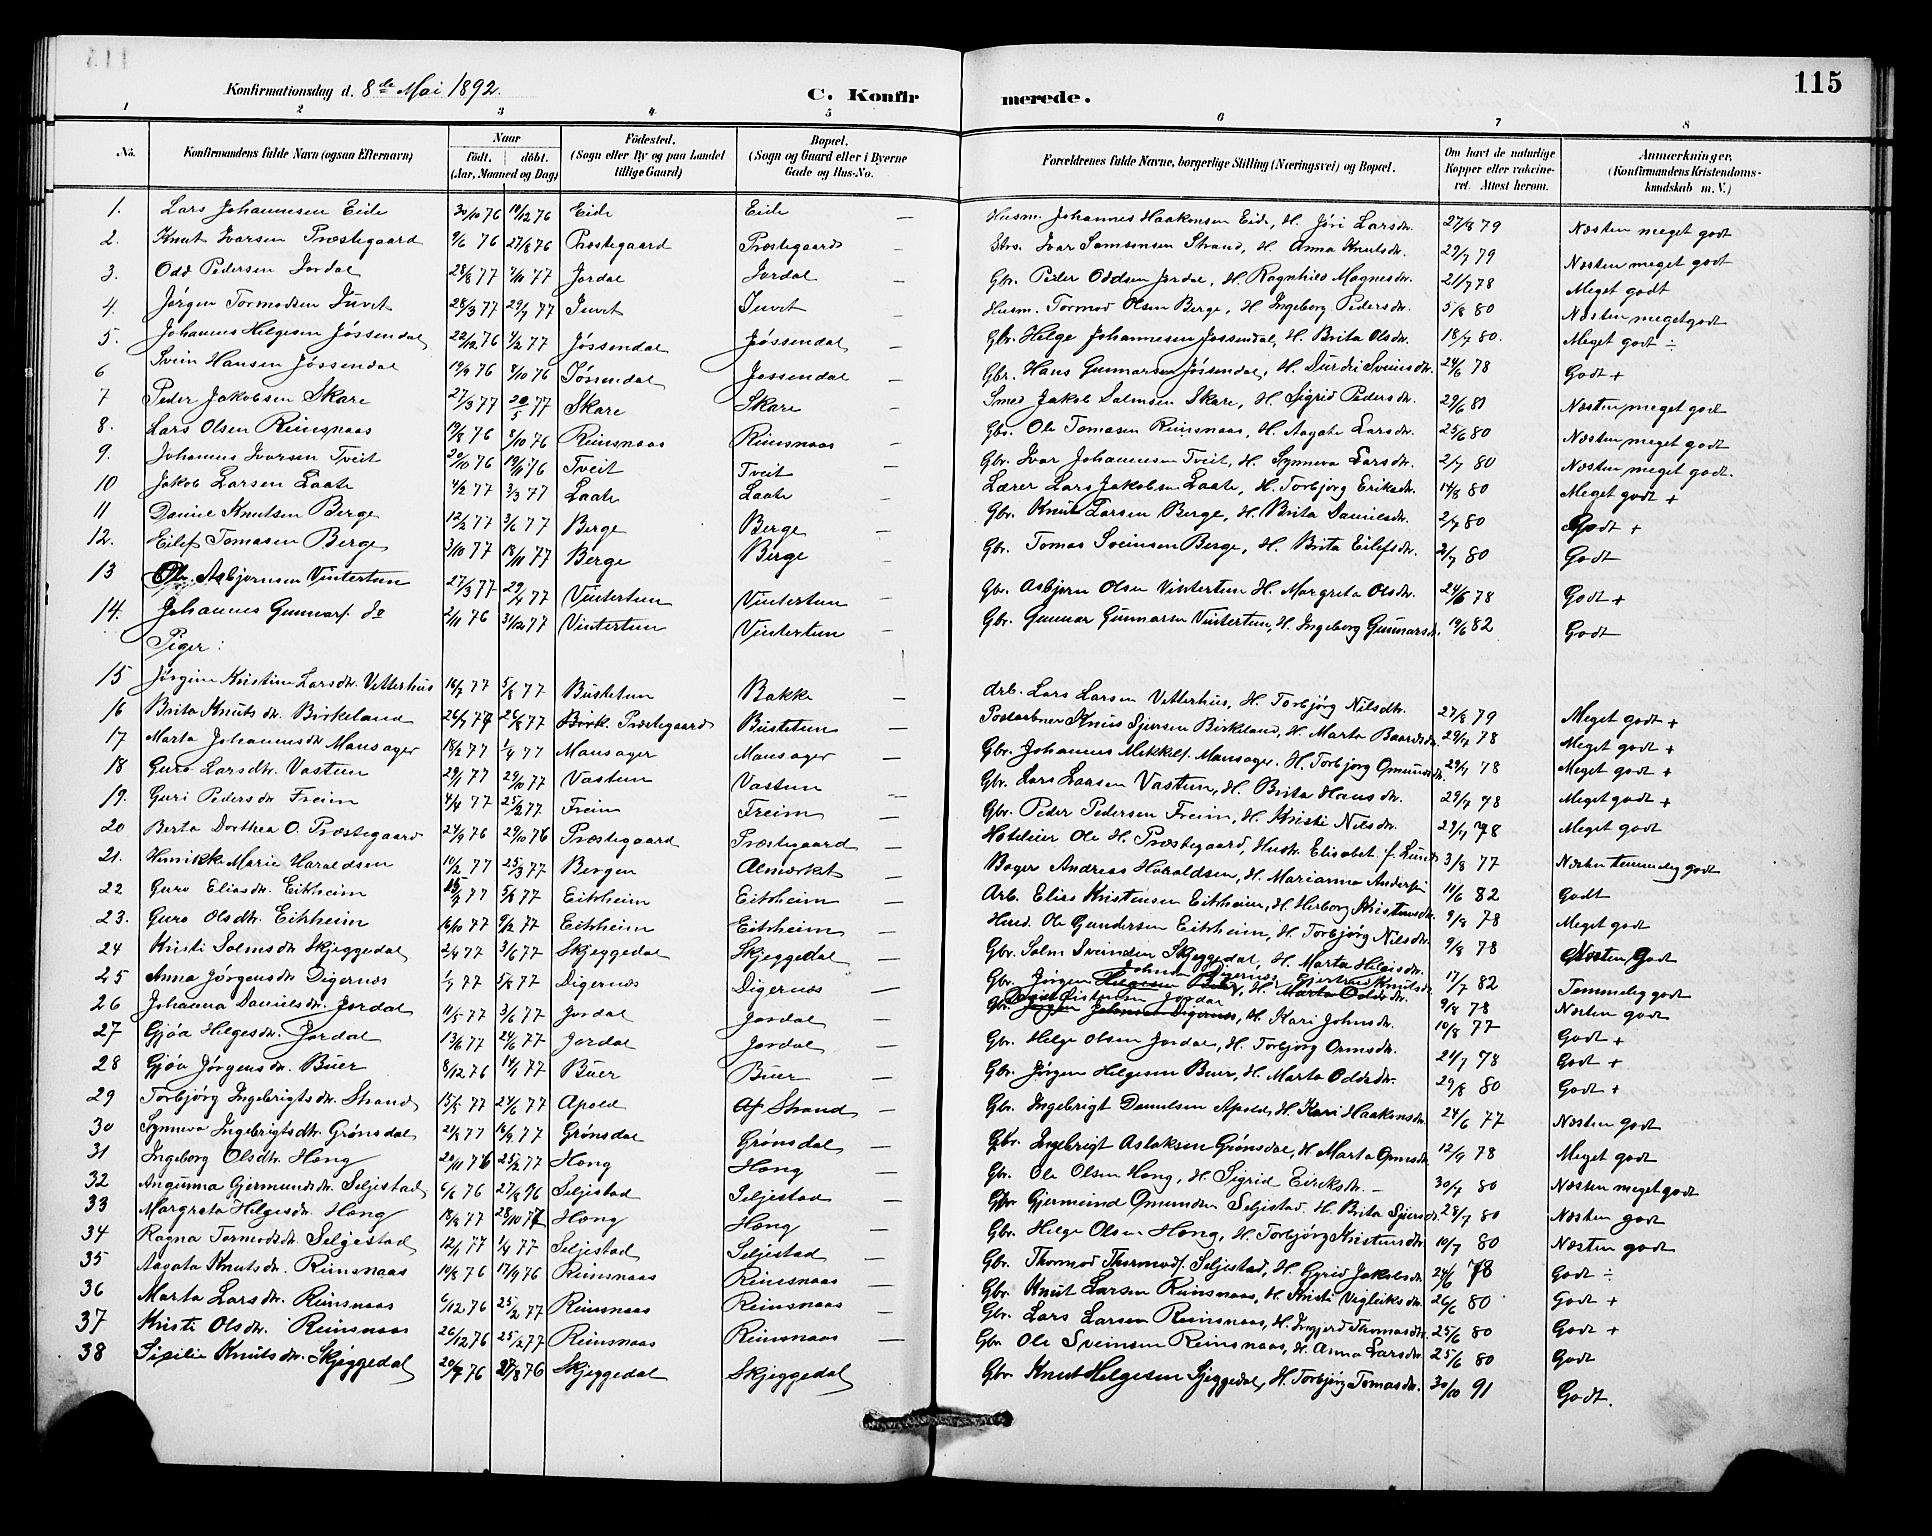 115
Konfirmationsdag d. 8de Mai 1892.
C. Konfirmerede.
1 2 3 4 5 6 7 8
No. Konfirmandens fulde Navn (ogsaa Efternavn) Naar födt. döbt. (Aar, Maaned og Dag) Födested. (Sogn eller By og paa Landet tillige Gaard) Bopæl. (Sogn og Gaard eller i Byerne Gade og Hus-No. Forældrenes fulde Navne, borgerlige Stilling (Næringsvei) og Bopæl. Om havt de naturlige Kopper eller vaccineret. Attest herom. Anmærkninger. (Konfirmandens Kristendomskundskab m. V.)
1. Lars Johannesen Eide 30/10 76 10/12 76 Eide Eide — Husm. Johannes Haakensen Eide, H. Jöri Larsdr. 27/8 79 Næsten meget godt
2. Knut Ivarsen Præstegaard 9/6 76 27/8 76 Præstegaard Præstegaard — Strs. Ivar Samsonsen Strand, H. Anna Knutsdr. 29/7 79 Næsten meget godt
3. Odd Pedersen Jordal 28/8 77 7/10 77 Jordal Jordal — Gbr. Peder Oddsen Jordal, H. Ragnhild Magnesdr. 21/7 78 Meget godt
4. Jørgen Tormodsen Juvet 28/3 77 29/7 77 Juvet Juvet — Husm. Tormod Olsen Berge, H. Ingeborg Pedersdr. 5/8 80 Næsten meget godt
5. Johannes Helgesen Jøssendal 22/12 76 4/2 77 Jøssendal Jøssendal — Gbr. Helge Johannesen Jøssendal, H. Brita Olsdr. 18/7 80. Meget godt ÷
6 Svein Hansen Jøssendal 19/9 76 8/10 76 Jøssendal Jøssendal — Gbr. Hans Gunnarsen Jøssendal, H. Durdei Sveinsdr. 24/6 78 Godt +
7 Peder Jakobsen Skare 27/3 77 20/5 77 Skare Skare — Smed Jakob Salmsen Skare, H. Sigrid Pedersdr. 29/6 80 Næsten meget godt
8. Lars Olsen Reinsnaas 19/8 76 8/10 76 Reinsnaas Reinsnaas — Gbr. Ole Tomasen Reinsnaas, H. Aagate Larsdr. 25/6 80 Næsten meget godt
9. Johannes Ivarsen Tveit 20/10 76 19/11 76 Tveit Tveit — Gbr. Ivar Johannesen Tveit, H. Synneva Larsdr. 2/7 80 Næsten meget godt.
10 Jakob Larsen Laate 4/2 77 3/3 77 Laate Laate — Lærer Lars Jakobsen Laate, H. Torbjörg Eriksdr. 14/8 80 Meget godt +
11 Daniel Knutsen Berge 12/2 77 3/6 77 Berge Berge — Gbr. Knut Larsen Berge, H. Brita Danielsdr. 2/7 80 Godt +
12. Eilef Tomasen Berge 3/10 77 18/11 77 Berge Berge — Gbr. Tomas Sveinsen Berge, H. Brita Eilefsdr. 2/7 80 Godt
13 Ole Asbjørnsen Vintertun 27/3 77 29/4 77 Vintertun Vintertun — Gbr. Asbjørn Olsen Vintertun H. Margreta Olsdr. 24/6 78 Godt +
14. Johannes Gunnars. do 2/11 76 31/12 77 Vintertun Vintertun — Gbr. Gunnar Gunnarsen Vintertun, H. Ingeborg Gunnarsdr. 19/6 82 Godt
Piger:
15 Jørgine Kristine Larsdtr. Vetterhus 16/7 77 5/8 77 Busketun Bakke — Arb. Lars Larsen Vetterhus, H. Torbjørg Nilsdtr. 27/8 79 Meget godt +
16 Brita Knutsdr. Birkeland 26/7 77 26/8 77 Præstegaard Busketun — Postaabner Knut Sjursen Birkeland, H. Marta Baardsdr. 29/7 78 Meget godt +
17 Marta Johannesdtr Mansager 18/2 77 1/4 77 Mansager Mansager — Gbr. Johannes Mikkels. Mansager. H. Torbjörg Omundsdr. 29/7 78 Meget godt +
18 Guro Larsdtr. Vastun 29/1 77 29/10 77 Vastun Vastun — Gbr. Lars Larsen Vastun, H. Brita Hansdr. 29/7 78 Meget godt +
19. Guri Pedersdr Freim 4/4 77 25/2 77 Freim Freim — Gbr. Peder Pedersen Freim, H. Kristi Nilsdr. 29/7 78 Meget godt
20 Berta Dorthea O. Præstegaard 24/9 76 29/10 76 Præstegaard Præstegaard — Hoteleier Ole H. Præstegaard, Hustr. Elisabet f. Lund 3/8 77 Næsten temmelig godt
21. Henrikke Marie Haraldsen 10/2 77 25/3 77 Bergen Almerket — Bager Andreas Haraldsen, H. Marianna Anders. 11/6 82 Godt
22 Guro Eliasdr. Eikheim 77 5/8 77 Eitrheim Eitrheim — Arb. Elias Kristensen Eitrheim, H. Herborg Kristensdr. 9/8 78 Meget godt
23. Guro Olsdtr. Eikheim 16/10 77 9/12 77 Eitrheim Eitrheim — Husm. Ole Gundersen Eitrheim, H. Torbjørg Nilsdtr. 9/8 78 Næsten Godt
24 Kristi Salmsdtr Skjeggedal 2/4 77 3/6 77 Skjeggedal Skjeggedal — Gbr. Salm Sveindsen Skjeggedal, H. Marta Helgesdr. 17/7 82 Temmelig godt
25 Anna Jørgensdr. Digernæs 1/7 77 5/8 77 Digernæs Digernæs — Gbr. Jørgen Johnsen Digernæs, H. Gjertrud Knutsdr. 9/8 78 Næsten godt
26 Johanna Danielsdr. Jordal 11/5 77 3/6 77 Jordal Jordal — Gbr. Jordal, H. Kari Johnsdr. 10/8 77 Godt +
27 Gjøa Helgesdr. Jordal 13/6 77 24/6 77 Jordal Jordal — Gbr. Helge Olsen Jordal, H. Torbjørg Ormsdr. 24/7 78 Godt +
28 Gjøa Jørgensdr. Buer 8/12 76 14/1 77 Buer Buer — Gbr. Jørgen Helgesen Buer, H. Marta Oddsdr. 29/8 80 Godt +
29 Torbjörg Ingebrigtsdr. Strand 15/5 77 24/6 77 Apold Af Strand — Gbr. Ingebrigt Danielsen Apold, H. Kari Haakensdr. 24/6 77 Næsten godt
30 Synneva Ingebrigtsdtr. Grönsdal 21/8 77 16/9 77 Grönsdal Grönsdal — Gbr. Ingebrigt Aslaksen Grönsdal, H. Marta Ormsdr. 12/9 78 Meget godt
31 Ingeborg Olsdtr. Hong 20/11 76 25/2 77 Hong Hong — Gbr. Ole Olsen Hong, H. Sigrid Eiriksdr. — 30/7 80 Næsten meget godt
32 Angunna Gjermundsdr. Seljestad 6/8 76 27/8 76 Seljestad Seljestad — Gbr. Gjermund Omundsen Seljestad, H. Brita Sjursdr. 28/7 80 Næsten godt
33 Margreta Helgesdr. Hong 18/8 77 28/10 77 Hong Hong — Gbr. Helge Olsen Hong, H. Torbjørg Kristensdr. 10/7 80 Næsten godt
34 Ragna Tormodsdr. Seljestad 12/1 77 1/4 77 Seljestad Seljestad — Gbr. Thormod Thormods. Seljestad, H. Gyrid Jakobsdr 24/6 78 Godt ÷
35 Aagata Knutsdr. Reinsnaas 10/8 76 17/9 76 Reinsnaas Reinsnaas — Gbr. Knut Larsen Reinsnaas, H. Kristi Vigleiksdr. 26/6 80 Godt +
36 Marta Larsdr. Reinsnaas 6/12 76 25/2 77 Reinsnaas Reinsnaas — Gbr. Lars Larsen Reinsnaas, H. Ingjerd Thomasdr. 25/6 80 Godt +
37 Kristi Olsdr. Reinsnaas 26/12 76 25/2 77 Reinsnaas Reinsnaas — Gbr. Ole Sveinsen Reinsnaas, H. Anna Larsdr 25/6 80 Godt
38 Sisilie Knutsdr. Skjeggedal 20/7 76 27/8 76 Skjeggedal Skjeggedal Gbr. Knut Helgesen Sjeggedal, H. Torbjörg Tomasdr. 30/10 91 Godt.